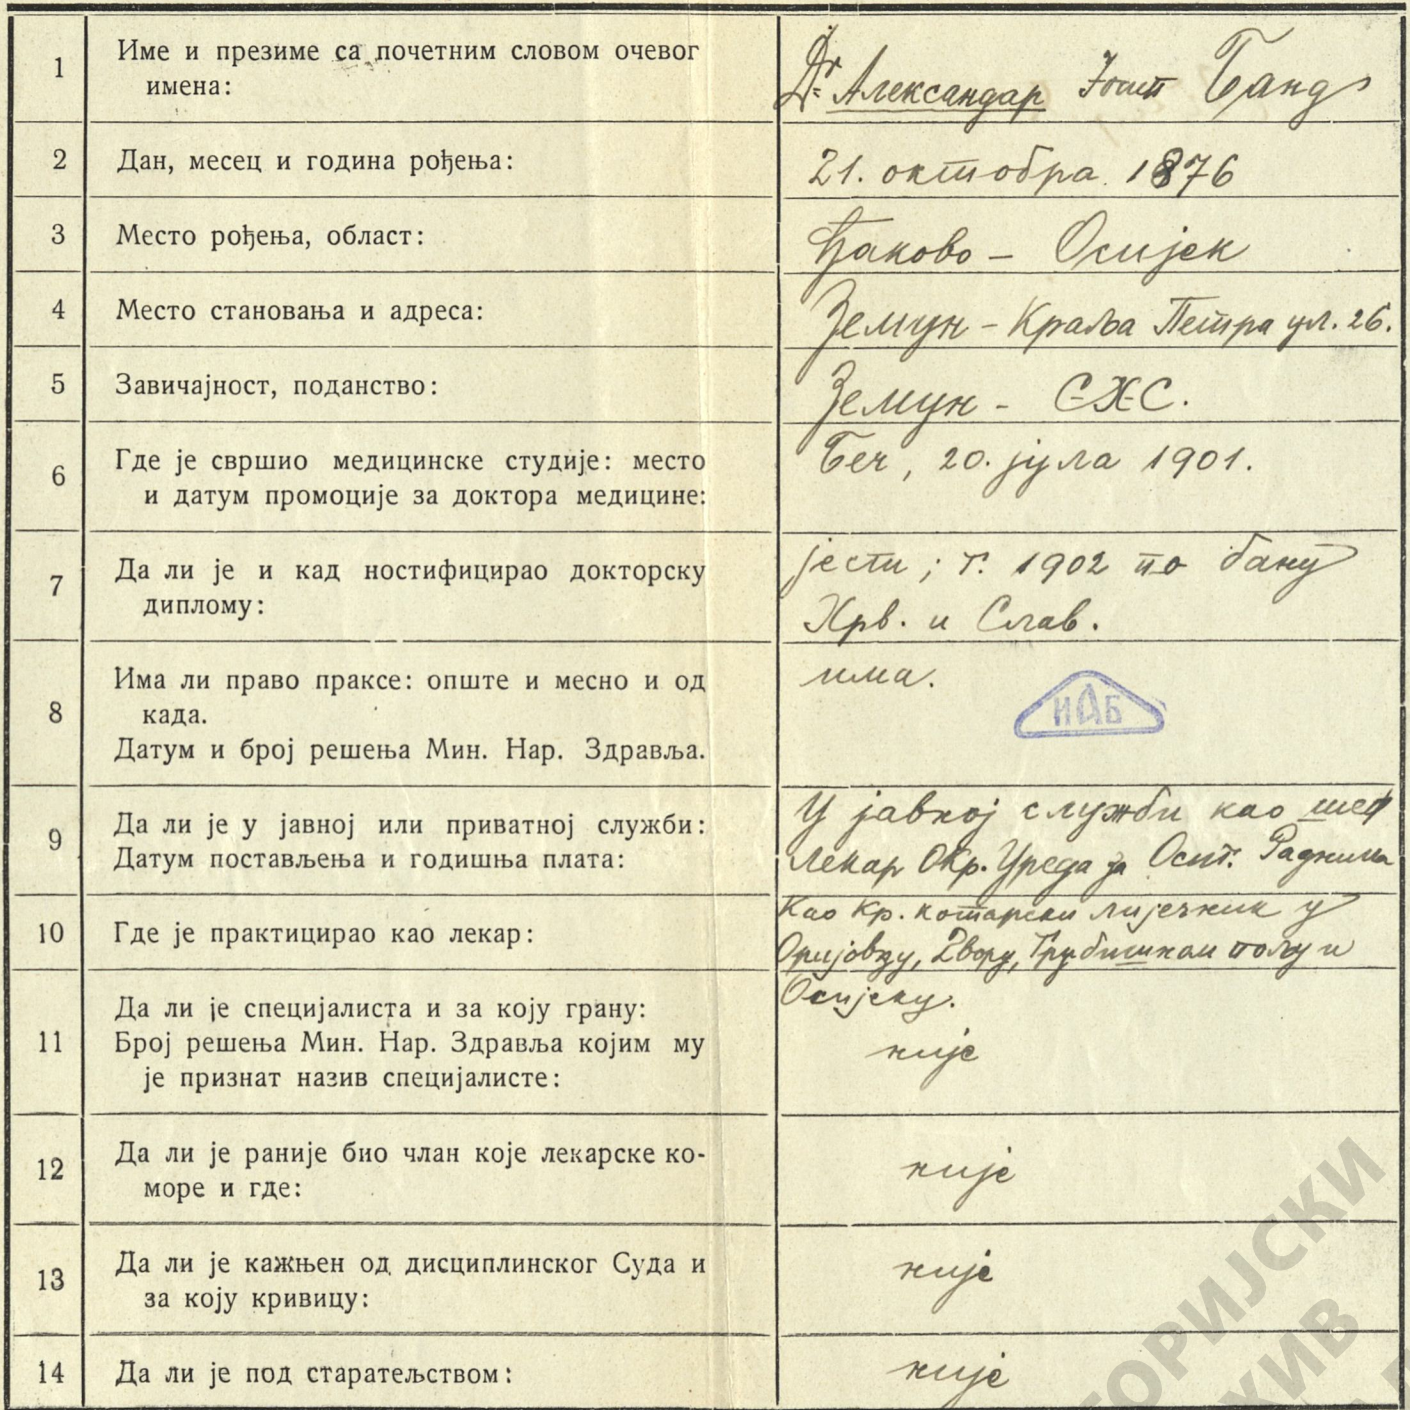 1
Име и презиме са почетним словом очевог
имена:
Dr. Александар Јосип Банд
2
Дан, месец и година рођења:
21. октобра 1876
3
Место рођења, област:
Ђаково – Осијек
4
Место становања и адреса:
Земун – Краља Петра ул. 26.
5
Завичајност, поданство:
Земун – СХС.
6
Где је свршио медицинске студије: место
и датум промоције за доктора медицине:
Беч, 20. јула 1901.
7
Да ли је и кад ностифицирао докторску
диплому:
јести; г. 1902 по бану
Хрв. и Слав.
8
Има ли право праксе: опште и месно и од
када.
Датум и број решења Мин. Нар. Здравља.
има.
ИАБ
9
Да ли је у јавној или приватној служби:
Датум постављења и годишња плата:
У јавној служби као шеф
лекар Окр. Уреда за Осиг. Радника
10
Где је практицирао као лекар:
Као Кр. котарски лијечник у
Оријовцу, Двору, Грубишном пољу и
Осијеку.
11
Да ли је специјалиста и за коју грану:
Број решења Мин. Нар. Здравља којим му
је признат назив специјалисте:
није
12
Да ли је раније био члан које лекарске ко-
море и где:
није
13
Да ли је кажњен од дисциплинског Суда и
за коју кривицу:
није
14
Да ли је под старатељством:
није